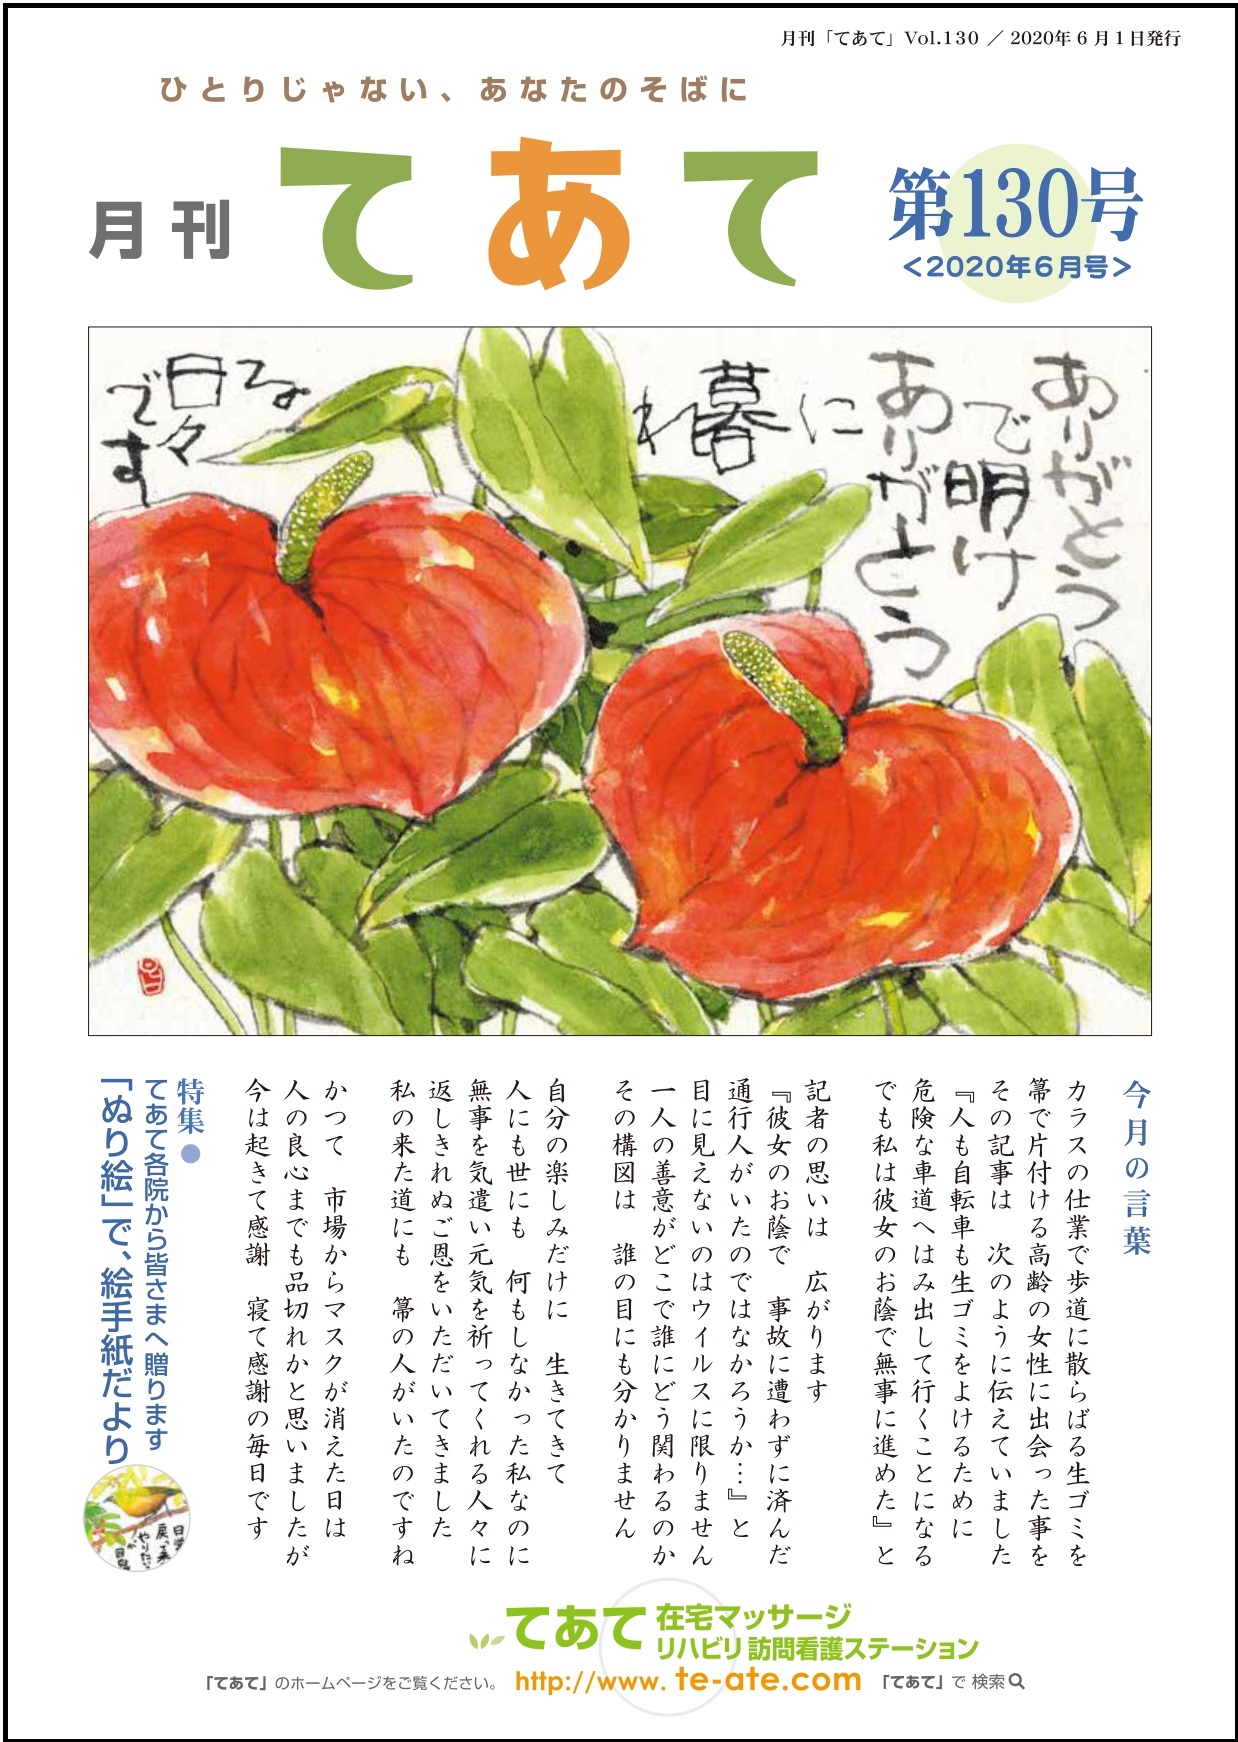 月刊「てあて」Vol.130 ／ 2020年６月１日発行
ひとりじゃない、あなたのそばに
月刊
てあて
第130号
＜2020年６月号＞
ありがとう
で明け
ありがとう
に
暮
れ
る
日々
です
今月の言葉
カラスの仕業で歩道に散らばる生ゴミを
箒で片付ける高齢の女性に出会った事を
その記事は　次のように伝えていました
『人も自転車も生ゴミをよけるために
危険な車道へはみ出して行くことになる
でも私は彼女のお蔭で無事に進めた』と
記者の思いは　広がります
『彼女のお蔭で　事故に遭わずに済んだ
通行人がいたのではなかろうか…』と
目に見えないのはウイルスに限りません
一人の善意がどこで誰にどう関わるのか
その構図は　誰の目にも分かりません
自分の楽しみだけに　生きてきて
人にも世にも　何もしなかった私なのに
無事を気遣い元気を祈ってくれる人々に
返しきれぬご恩をいただいてきました
私の来た道にも　箒の人がいたのですね
かつて　市場からマスクが消えた日は
人の良心までも品切れかと思いましたが
今は起きて感謝　寝て感謝の毎日です
特集●
てあて各院から皆さまへ贈ります
「ぬり絵」で、絵手紙だより
てあて 在宅マッサージ
リハビリ 訪問看護ステーション
「てあて」のホームページをご覧ください。 http://www. te-ate.com 「てあて」で 検索